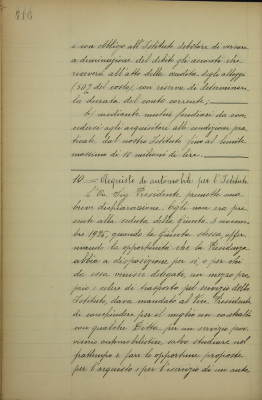 318
e con obbligo all'Istituto debitore di versare
a diminuzione del debito gli acconti che
riceverà all'atto della vendita degli alloggi
(50% del costo), con riserva di determinare
la durata del conto corrente;
b) mediante mutui fondiari da con=
cedersi agli acquirenti alle condizioni pra=
ticate dal nostro Istituto fino al limite
massimo di 18 milioni di lire.
10. = Acquisto di automobile per l'Istituto
L'On. Sig. Presidente premette una
breve dichiarazione. Egli non era pre=
sente alla seduta della Giunta 3 novem=
bre 1925, quando la Giunta stessa, affer=
mando la opportunità che la Presidenza
abbia a disposizione per sé, o per chi
da essa venisse delegato, un mezzo pro=
prio e celere di trasporto pel servizio dello
Istituto, dava mandato al Vice Presidente
di concludere per il meglio un contratto
con qualche Ditta per un servizio prov=
visorio automobilistico, salvo studiare nel
frattempo e fare le opportune proposte
per l'acquisto e per l'esercizio di un auto